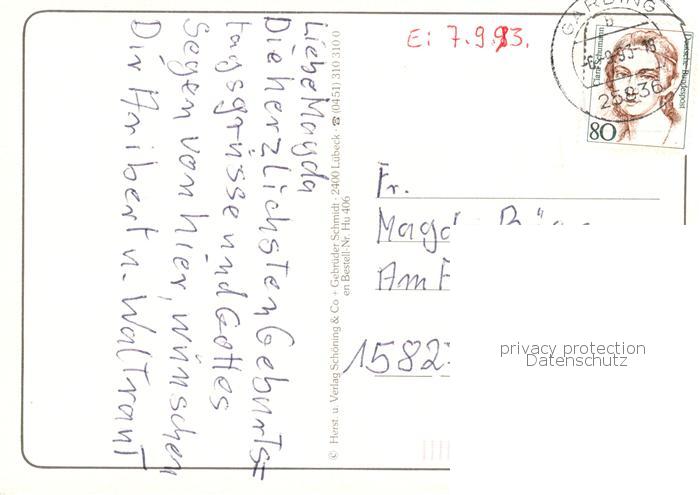 Liebe Magda
Die herzlichsten Geburts=
tagsgrüsse und Gottes
Segen von hier, wünschen
Dir Aribert u. Waltraut
© Herst. u. Verlag Schöning & Co + Gebrüder Schmidt · 2400 Lübeck · ☎ (0451) 310 310 0
en Bestell-Nr. Hu 406
E: 7.9.93.
GARDING
b
-6.-9.93-16
25836
Clara Schumann
Deutsche Bundespost
80
Fr.
Magd
Am
1582
privacy protection
Datenschutz